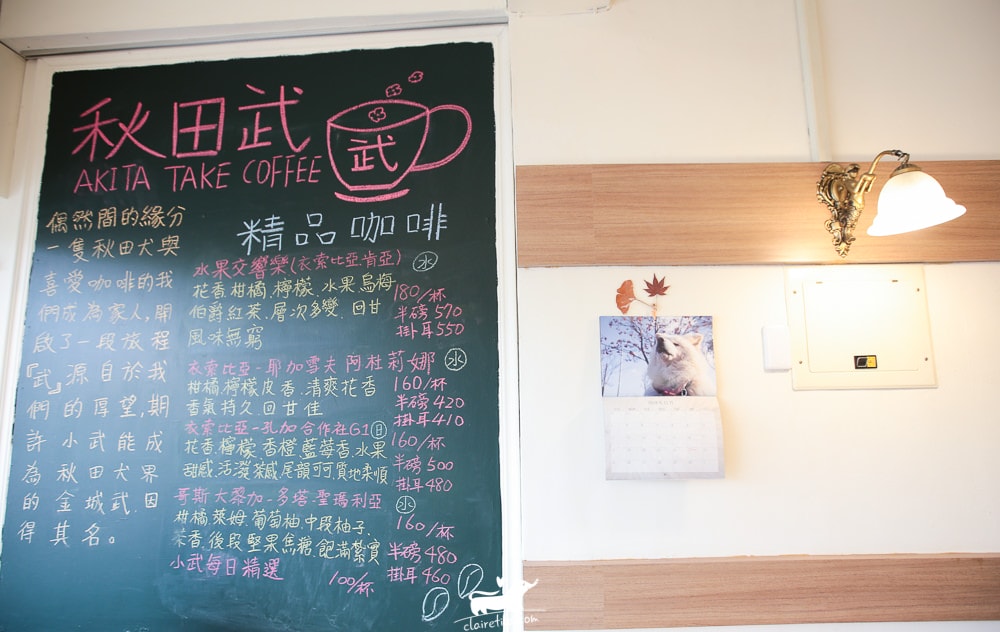 秋田武
武
AKITA TAKE COFFEE
偶然間的緣分
一隻秋田犬與
喜愛咖啡的我
們成為家人,開
啟了一段旅程
『武』源自於我
們的厚望,期
許小武能成
為秋田犬界
的金城武,因
得其名。
精品咖啡
水果交響樂(衣索比亞.肯亞) 水
花香.柑橘.檸檬.水果.烏梅
伯爵紅茶.層次多變.回甘
風味無窮
180/杯
半磅570
掛耳550
衣索比亞-耶加雪夫 阿杜莉娜 水
柑橘.檸檬皮香.清爽花香
香氣持久.回甘佳
160/杯
半磅420
掛耳410
衣索比亞-孔加合作社G1 日
花香.檸檬.香橙.藍莓香.水果
甜感.活潑茶感.尾韻可可.質地柔順
160/杯
半磅500
掛耳480
哥斯大黎加-多塔-聖瑪利亞 水
柑橘.萊姆.葡萄柚.中段柚子.
茶香.後段堅果焦糖.飽滿紮實
160/杯
半磅480
掛耳460
小武每日精選 100/杯